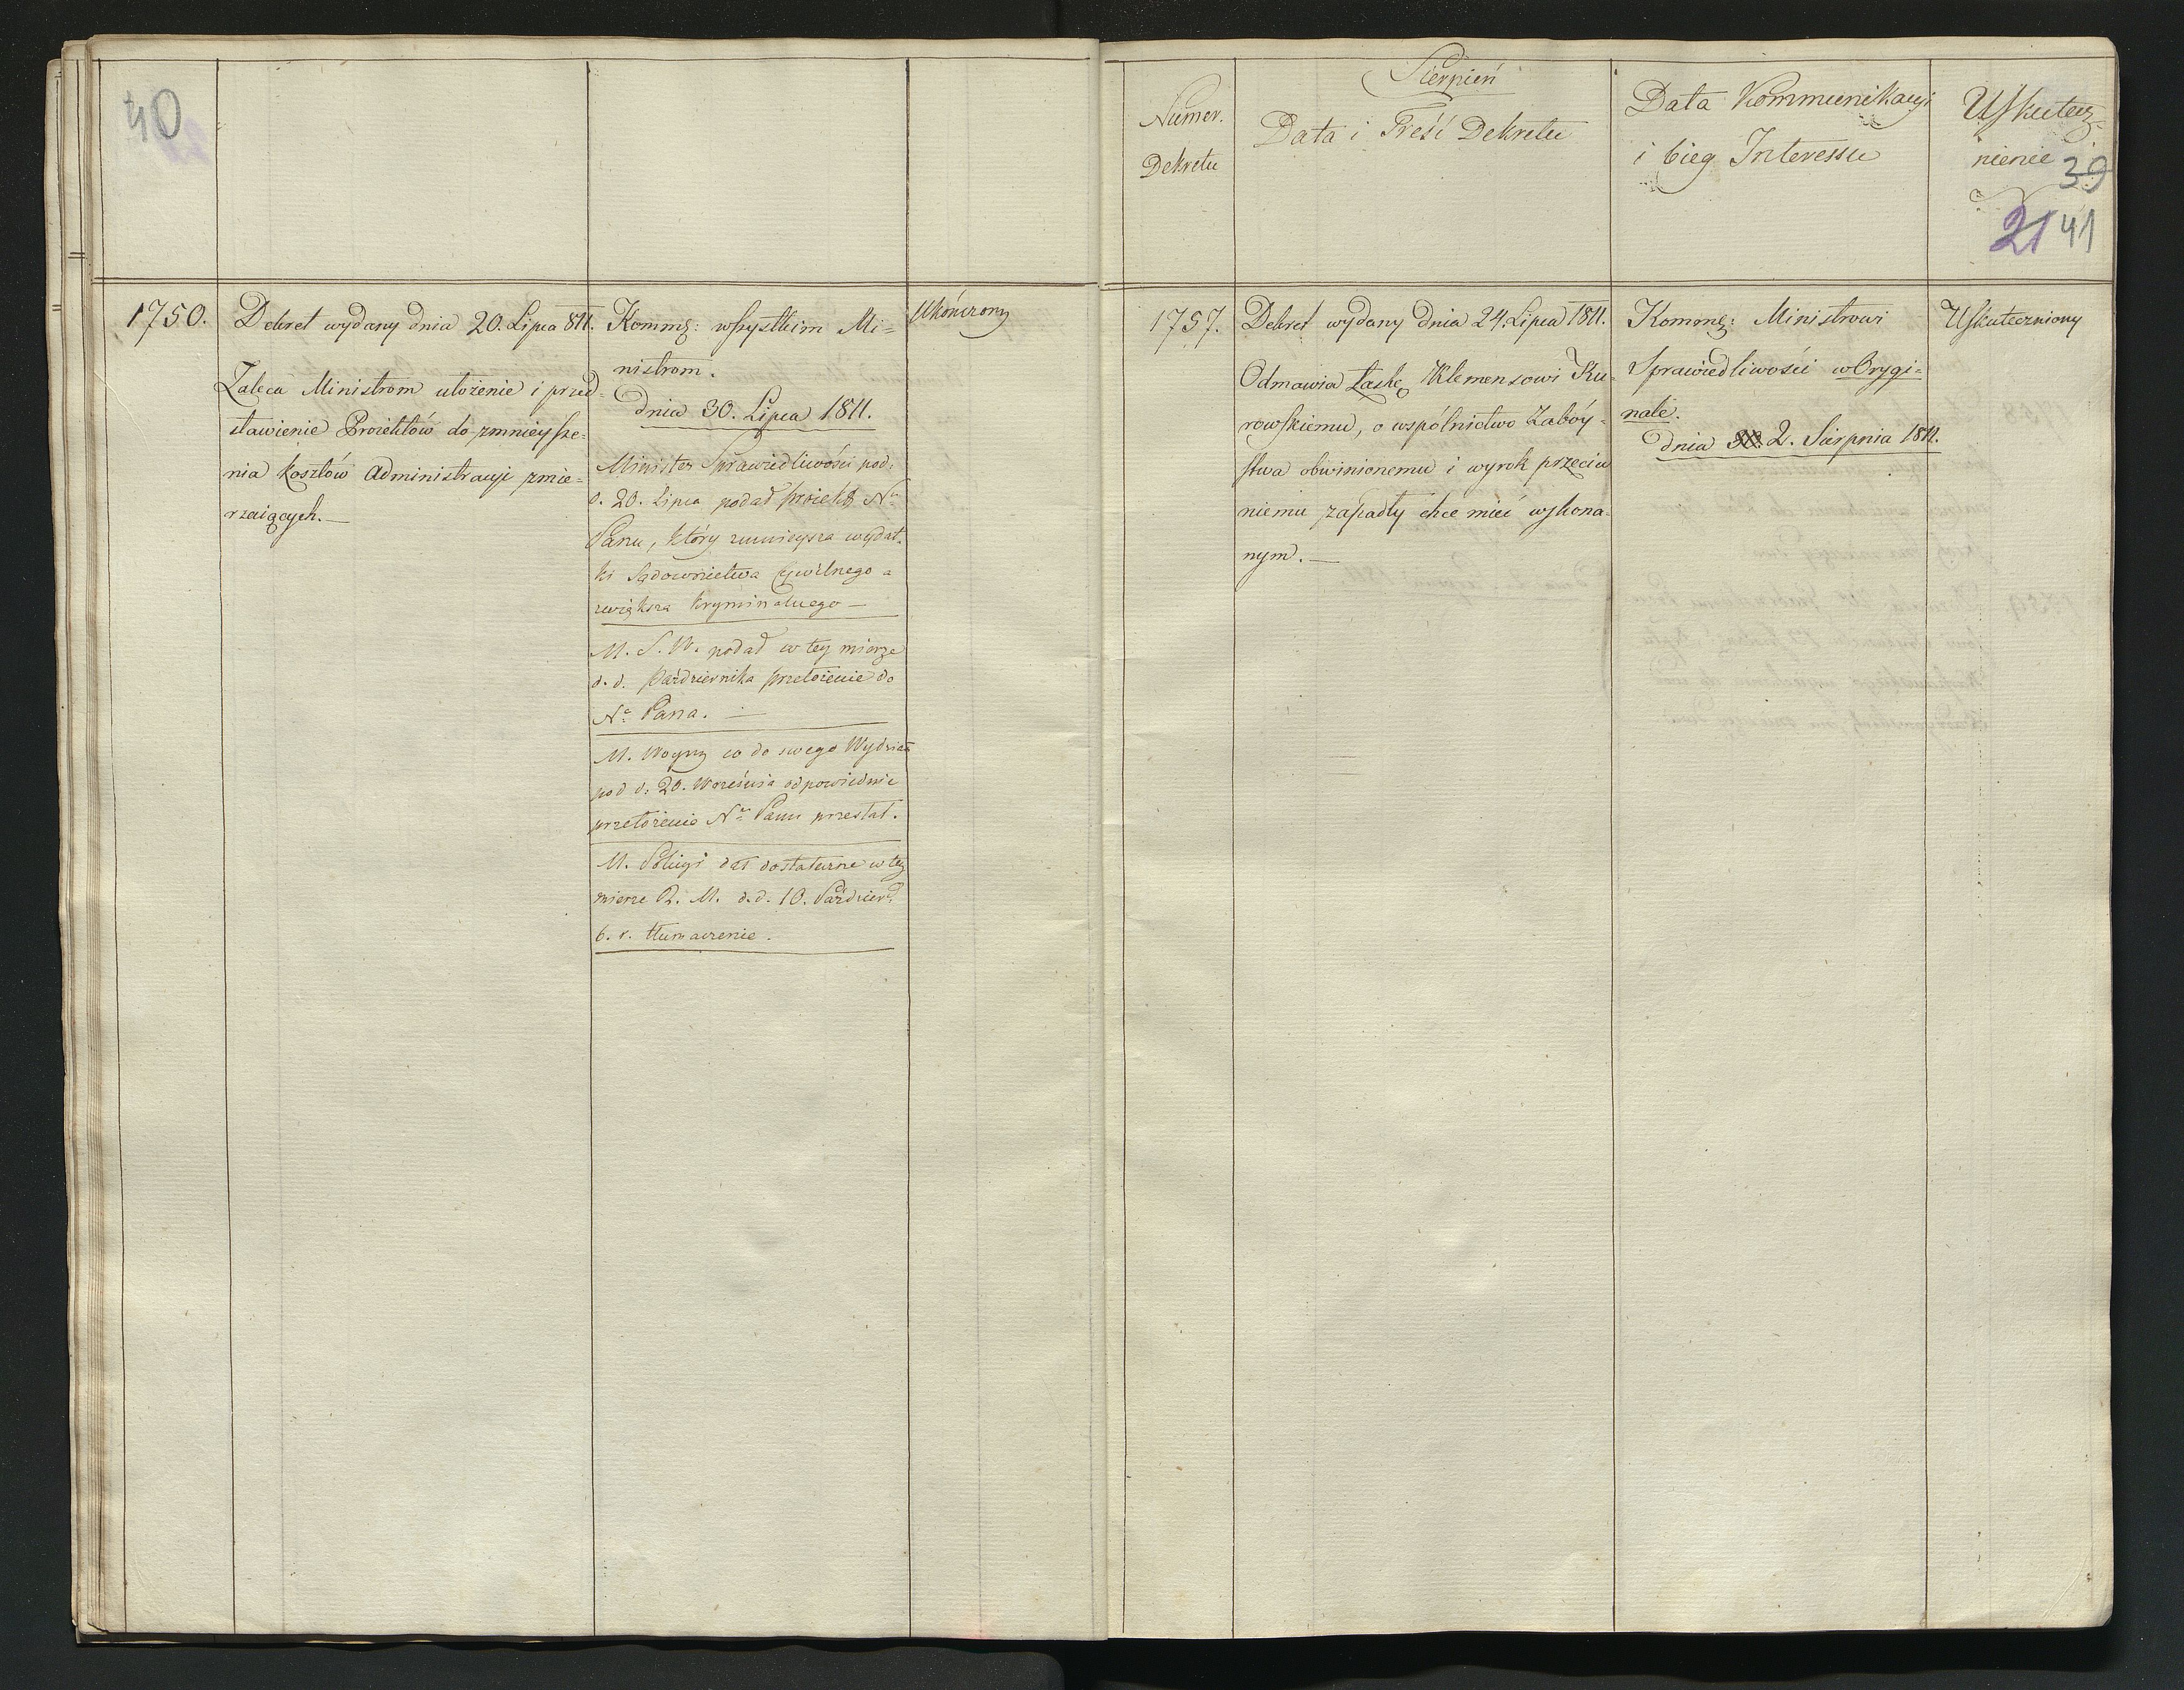 40
1750.
Dekret wydany dnia 20. Lipca 811.
Zaleca Ministrom ułożenie i przed-
stawienie Proiektów do zmnieysze-
nia kosztów Administracyi zmie-
rzaiących.—
Kommg: wszystkim Mi-
nistrom.
dnia 30. Lipca 1811.
Minister Sprawiedliwości pod.
d. 20. Lipca podał proiekt Nu
Panu, który zmnieysza wydat-
ki Sądownictwa Cywilnego a
zwiększa Kryminalnego —
M. S. W. podał w tey mierze
d. d. Października przełożenie do
Na Pana. —
M. Woyny co do swego Wydział
pod d. 20. Września odpowiednie
przełożenie Nu Panu przesłał.
M. Policyi dał dostateczne w tey
mierze R. M. d.d. 10. Paździer
b. r. tłumaczenie.
Ukończony
Sierpień
Numer.
Dekretu
Data i Treść Dekretu
Data Kommunikacyi
i bieg Interessu
Uskutecz-
nienie
39
21 41
1757.
Dekret wydany dnia 24. Lipca 1811.
Odmawia łaskę Klemensowi Ku-
rowskiemu, o wspólnictwo Zabóy-
stwa obwinionemu i wyrok przeciw
niemu zapadły chce mieć wykona-
nym.—
Kommg: Ministrowi
Sprawiedliwości w Orygi-
nale.
dnia 2. Sierpnia 1811.
Uskuteczniony